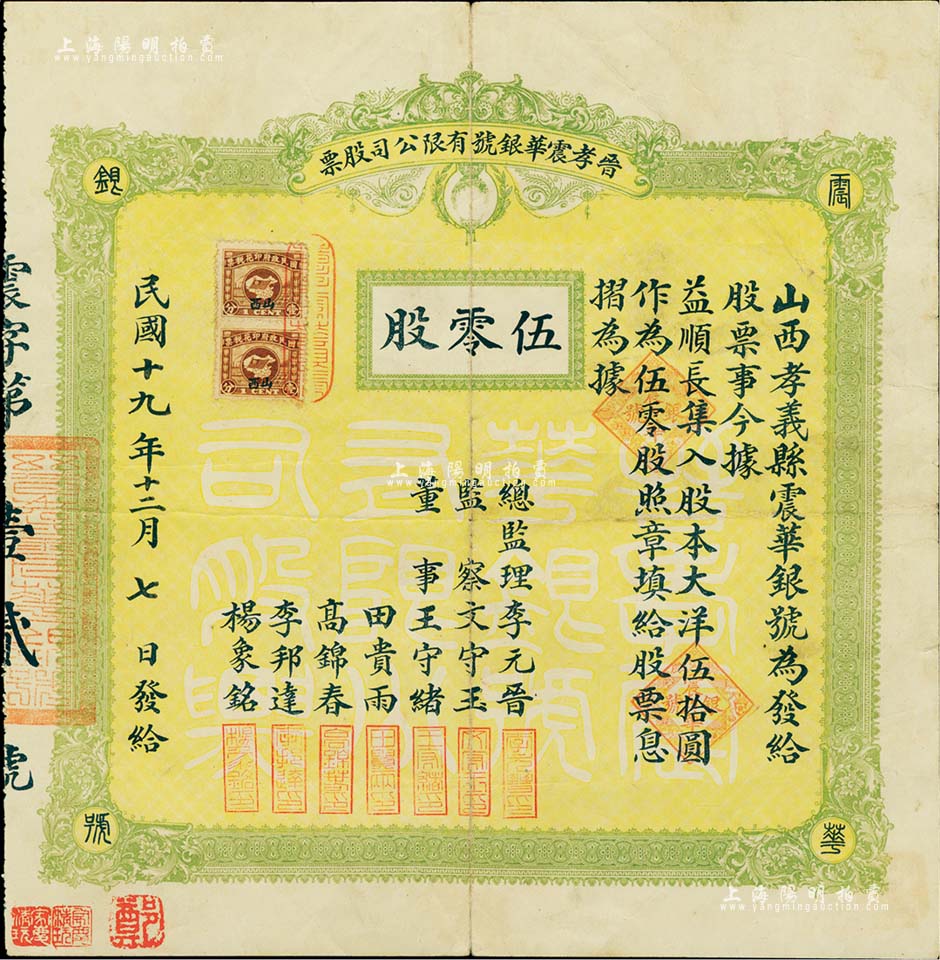 上海陽明拍賣
www.yangmingauction.com
晉孝震華銀號有限公司股票
震
華
銀
號
山西孝義縣震華銀號為發給
股票事今據
益順長集入股本大洋伍拾圓
作為伍零股照章填給股票息
摺為據
伍零股
總監理李元晉
監察文守玉
董事王守緒
田貴雨
高錦春
李邦達
楊象銘
民國十九年十二月七日發給
國民政府印花稅票
山西
壹分
1 CENT
國民政府印花稅票
山西
壹分
1 CENT
震字第壹貳號
上海陽明拍賣
www.yangmingauction.com
鄭
上海陽明拍賣
www.yangmingauction.com